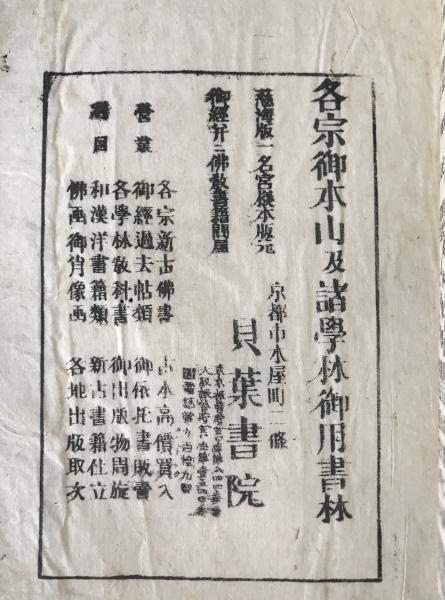 各宗御本山及諸學林御用書林
慈海版一名宮様本版元
御經并ニ佛敎書籍問屋
京都市木屋町二條
貝葉書院
營業
目
各宗新古佛書
御經過去帖類
各學林敎科書
和漢洋書籍類
佛画御肖像画
古本高價買入
御依托書販賣
御出版物周旋
新古書籍仕立
各地出版取次